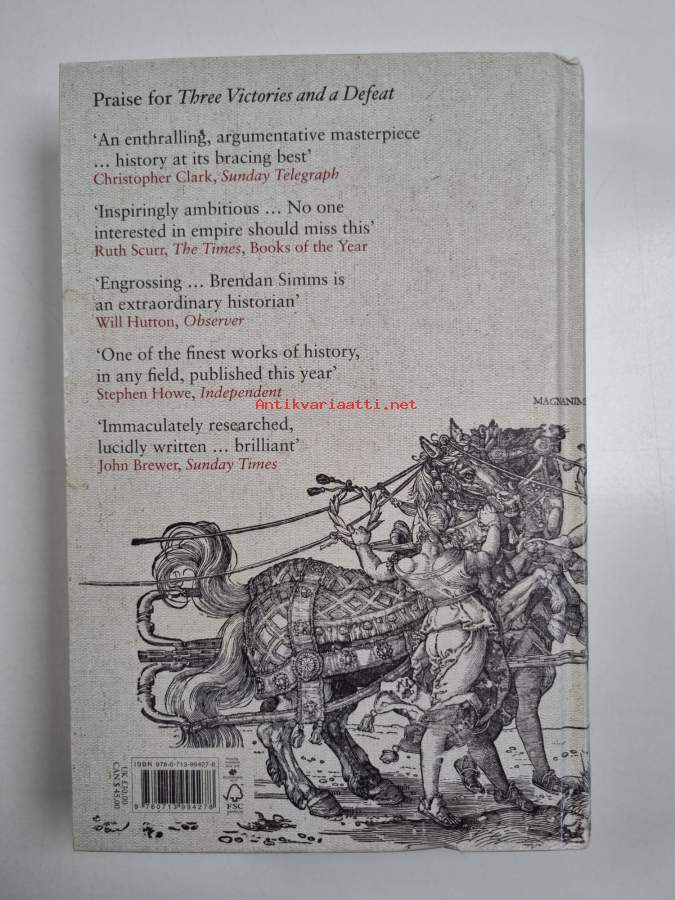 Praise for Three Victories and a Defeat
‘An enthralling, argumentative masterpiece
… history at its bracing best’
Christopher Clark, Sunday Telegraph
‘Inspiringly ambitious … No one
interested in empire should miss this’
Ruth Scurr, The Times, Books of the Year
‘Engrossing … Brendan Simms is
an extraordinary historian’
Will Hutton, Observer
‘One of the finest works of history,
in any field, published this year’
Stephen Howe, Independent
Antikvariaatti.net
MAGNANIM
‘Immaculately researched,
lucidly written … brilliant’
John Brewer, Sunday Times
ISBN 978-0-713-99427-8
9 780713 994278
UK £30.00
CAN $ 45.00
FSC